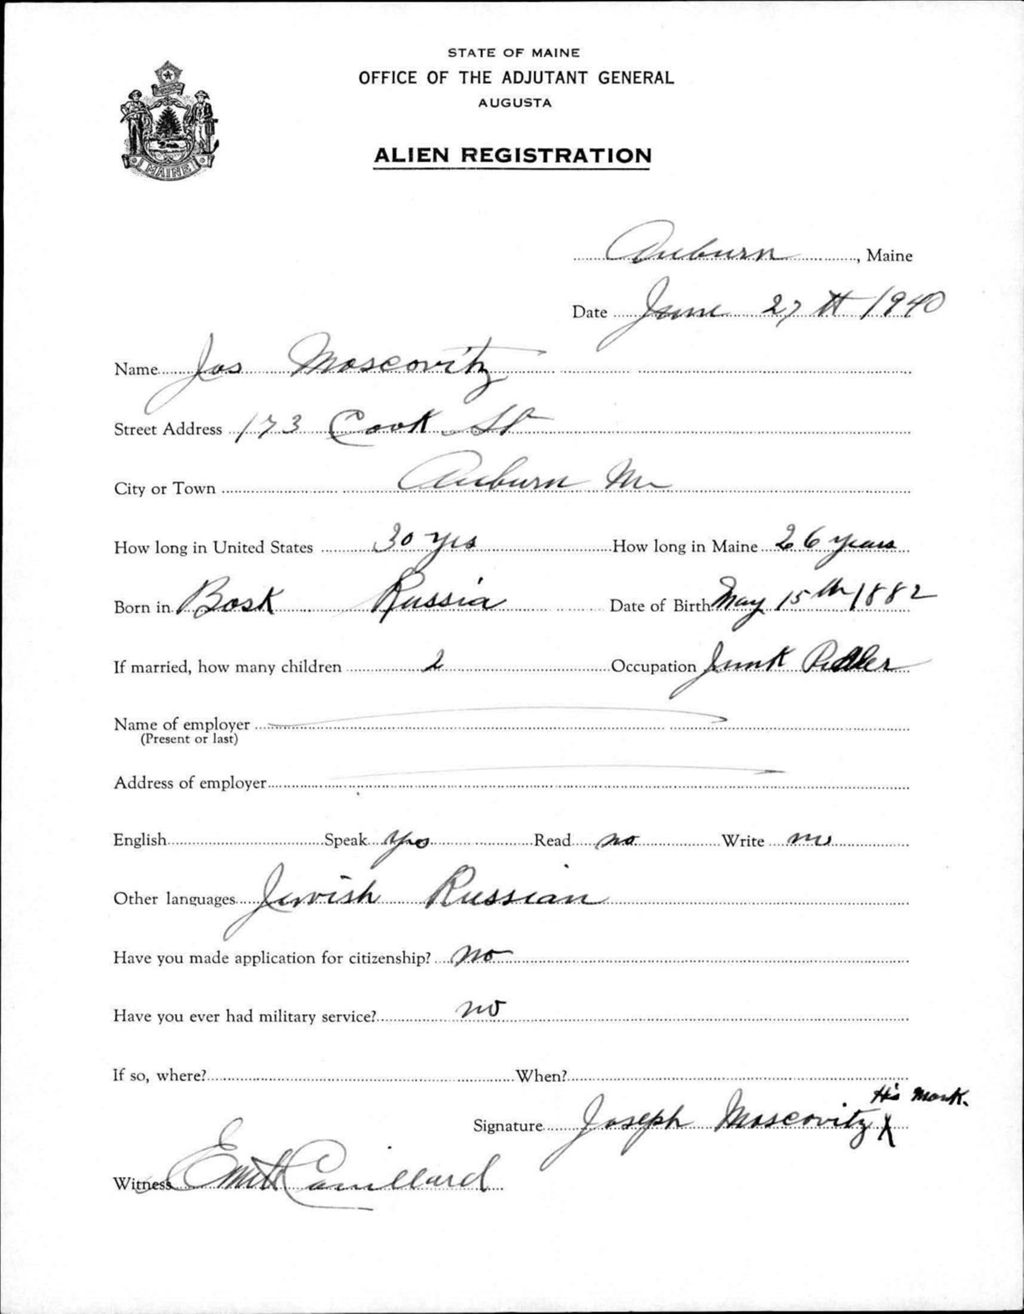 STATE OF MAINE
OFFICE OF THE ADJUTANT GENERAL
AUGUSTA
ALIEN REGISTRATION
MAINE
Auburn, Maine
Date June 27th 1940
Name Jos Moscovitz
Street Address 173 Cook St
City or Town Auburn Me
How long in United States 30 yrs How long in Maine 26 years
Born in Bosk Russia Date of Birth May 15th 1882
If married, how many children 2 Occupation Junk Pedler
Name of employer
(Present or last)
Address of employer
English Speak yes Read no Write no
Other languages Jewish Russian
Have you made application for citizenship? no
Have you ever had military service? no
If so, where? When?
His Mark.
Signature Joseph Moscovitz X
Witness